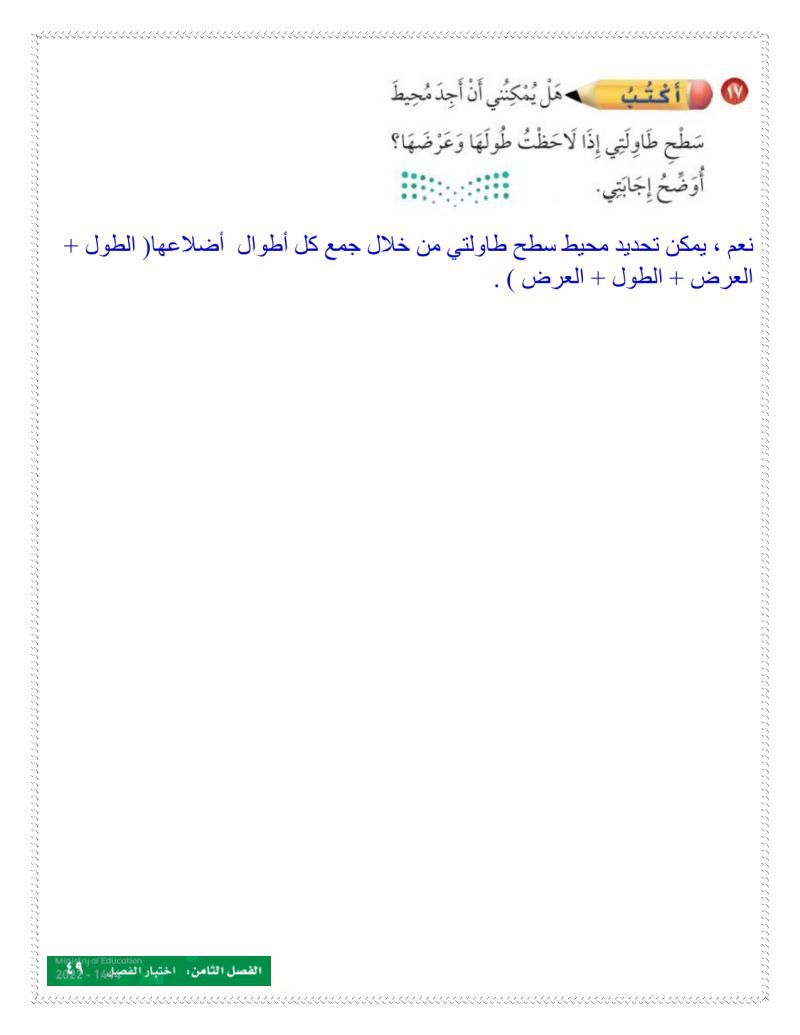 ١٧ أَكْتُبُ هَلْ يُمْكِنُنِي أَنْ أَجِدَ مُحِيطَ
سَطْحِ طَاوِلَتِي إِذَا لَاحَظْتُ طُولَهَا وَعَرْضَهَا؟
أُوَضِّحُ إِجَابَتِي.
نعم ، يمكن تحديد محيط سطح طاولتي من خلال جمع كل أطوال أضلاعها( الطول +
العرض + الطول + العرض ) .
الفصل الثامن: اختبار الفصل ٤٩
Ministry of Education
2022 - 1444